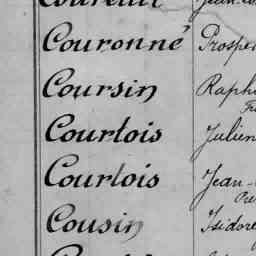 Couronné Prosper
Coursin Raph
Courtois Julien
Courtois Jean-
Cousin Isidore